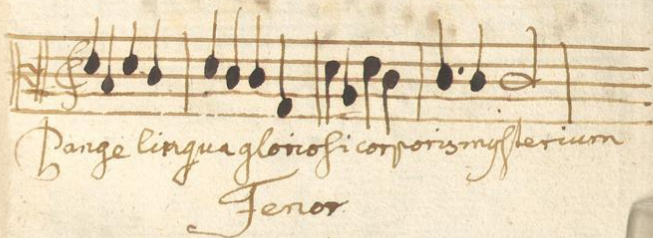 Pange lingua gloriosi corporis mysterium
Tenor